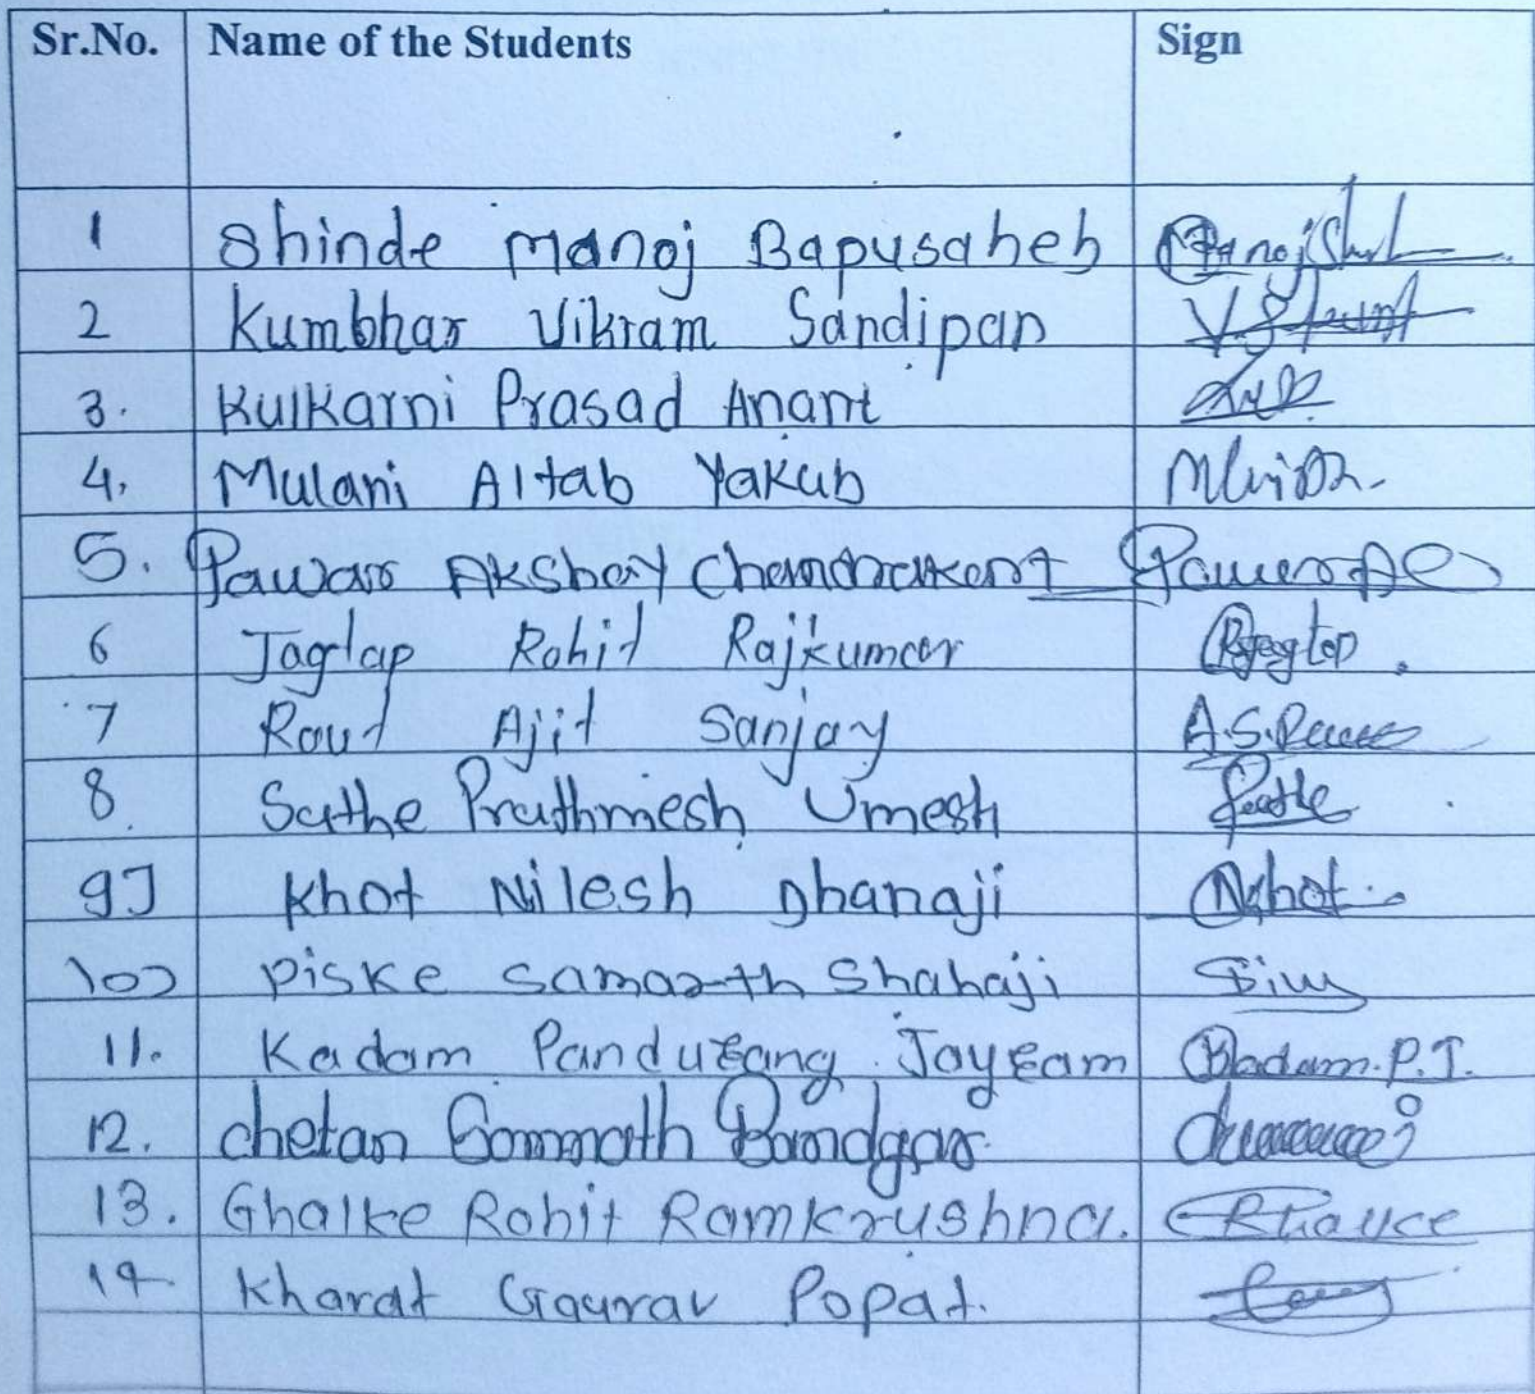 Sr.No. Name of the Students Sign
1 Shinde Manoj Bapusaheb
2 Kumbhar Vikram Sandipan
3. Kulkarni Prasad Anant
4. Mulani Altab Yakub
5. Pawar Akshay Chandrakant
6 Jagtap Rohit Rajkumar
7 Raut Ajit Sanjay A.S.
8. Sathe Prathmesh Umesh
9] Khot Nilesh Dhanaji Nkhot
10) Piske Samarth Shahaji
11. Kadam Pandurang Jayram Kadam.P.J.
12. Chetan Somnath Bandgar
13. Ghalke Rohit Ramkrushna.
14. Kharat Gaurav Popat.